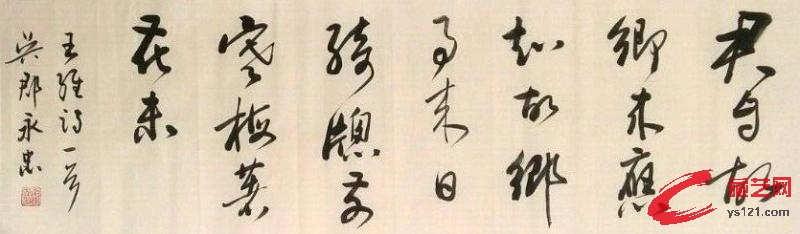 君自故
鄉来應
知故鄉
事来日
綺牕前
寒梅著
花未
王維詩一首
吳郡永忠
艺网
ys121.com